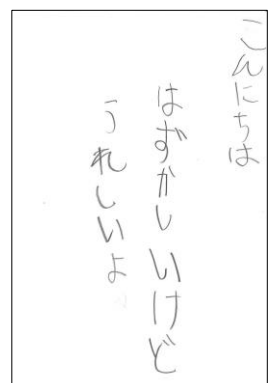 こんにちは
はずかしいけど
うれしいよ